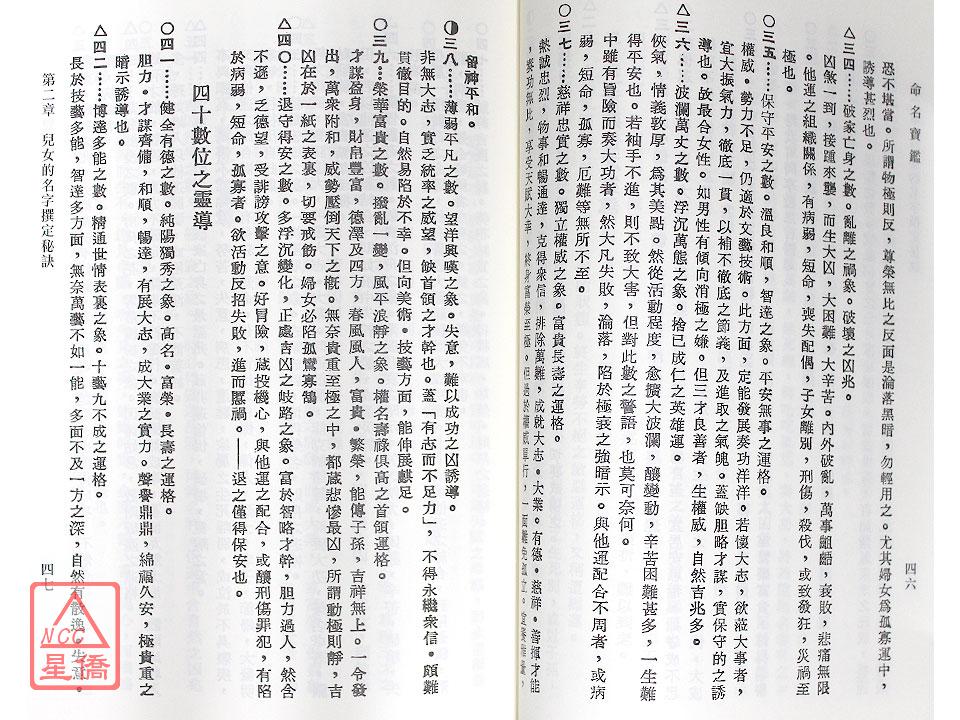 命名寶鑑
四六
恐不堪當。所謂物極則反，尊榮無比之反面是淪落黑暗，勿輕用之。尤其婦女爲孤寡運中，
誘導甚烈也。
△三四……破家亡身之數。亂離之禍象。破壞之凶兆。
凶煞一到，接踵來襲，而生大凶，大困難，大辛苦。內外破亂，萬事齟齬，衰敗，悲痛無限
。他運之組織關係，有病弱，短命，喪失配偶，子女離別，刑傷，殺伐，或致發狂，災禍至
極也。
○三五……保守平安之數。溫良和順，智達之象。平安無事之運格。
權威。勢力不足，仍適於文藝技術。此方面，定能發展奏功洋洋。若懷大志，欲蒞大事者，
宜大振氣力，徹底一貫，以補不徹底之節義，及進取之氣魄。蓋缺胆略才謀，實保守的之誘
導也。故最合女性。如男性有傾向消極之嫌。但三才良善者，生權威，自然吉兆多。
△三六……波瀾萬丈之數。浮沉萬態之象。捨已成仁之英雄運。
俠氣，情義敦厚，爲其美點。然從活動程度，愈擴大波瀾，釀變動，辛苦困難甚多，一生難
得平安也。若袖手不進，則不致大害，但對此數之警語，也莫可奈何。
中雖有冒險而奏大功者，然大凡失敗，淪落，陷於極衰之強暗示。與他運配合不周者，或病
弱，短命，孤寡，厄難等無所不至。
○三七……慈祥忠實之數。獨立權威之象。富貴長壽之運格。
熱誠忠烈，物事和暢通達，克得衆信，排除萬難，成就大志。大業。有德。慈祥。善揮才能
，奏功無比，享受天賦大幸，終身富榮至極。但過於權威單行，一面難免孤立。宜養雅量，
留神平和。
◑三八……薄弱平凡之數。望洋興嘆之象。失意，難以成功之凶誘導。
非無大志，實乏統率之威望，缺首領之才幹也。蓋「有志而不足力」，不得永繼衆信。頗難
貫徹目的。自然易陷於不幸。但向美術。技藝方面，能伸展麒足。
○三九……榮華富貴之數。撥亂一變，風平浪靜之象。權名壽祿俱高之首領運格。
才謀盈身，財帛豐富，德澤及四方，春風風人，富貴。繁榮，能傳子孫，吉祥無上。一令發
出，萬衆附和，威勢壓倒天下之概。無奈貴重至極之中，都蔵悲慘最凶，所謂動極則靜，吉
凶在於一紙之表裏，切要戒飭。婦女必陷孤鸞寡鵠。
四十數位之靈導
△四〇……退守得安之數。多浮沉變化，正處吉凶之岐路之象。富於智略才幹，胆力過人，然含
不遜，乏德望，受誹謗攻擊之意。好冒險，蔵投機心，與他運之配合，或釀刑傷罪犯，有陷
於病弱，短命，孤寡者。欲活動反招失敗，進而惹禍。——退之僅得保安也。
○四一……健全有德之數。純陽獨秀之象。高名。富榮。長壽之運格。
胆力。才謀齊備，和順，暢達，有展大志，成大業之實力。聲譽鼎鼎，綿福久安，極貴重之
暗示誘導也。
△四二……博達多能之數。精通世情表裏之象。十藝九不成之運格。
長於技藝多能，智達多方面，無奈萬藝不如一能，多面不及一方之深，自然有散漫。失意。
第二章 兒女的名字撰定秘訣
四七
NCC
星僑